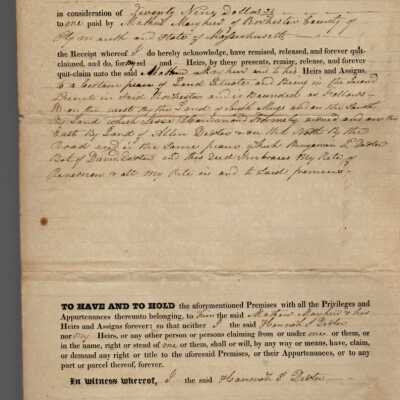 in consideration of Twenty Nine Dollars
to me paid by Mathew Mayhew of Rochester County of
Plymouth and State of Massachusetts
the Receipt whereof I do hereby acknowledge, have remised, released, and forever quit-
claimed, and do, for myself and my Heirs, by these presents, remise, release, and forever
quit-claim unto the said Mathew Mayhew and to his Heirs and Assigns,
to a certain piece of Land Situate and Being in the Second
Precinct in said Rochester and is Bounded as follows
on the West By the Land of and on the South
By Land which Jesse formerly owned and on the
East By Land of Allen Dexter & on the North By the
Road and is the Same peace which Benjamin L Dexter
Bot of David Dexter and this Deed Imbraces My Rite of
& all My Rite in and to Said premises
TO HAVE AND TO HOLD the aforementioned Premises with all the Privileges and
Appurtenances thereunto belonging, to him the said Mathew Mayhew & his
Heirs and Assigns forever; so that neither I the said Hannah S Dexter
nor my Heirs, or any other person or persons claiming from or under me or them, or
in the name, right or stead of me or them, shall or will, by any way or means, have, claim,
or demand any right or title to the aforesaid Premises, or their Appurtenances, or to any
part or parcel thereof, forever.
In witness whereof, I the said Hannah S Dexter